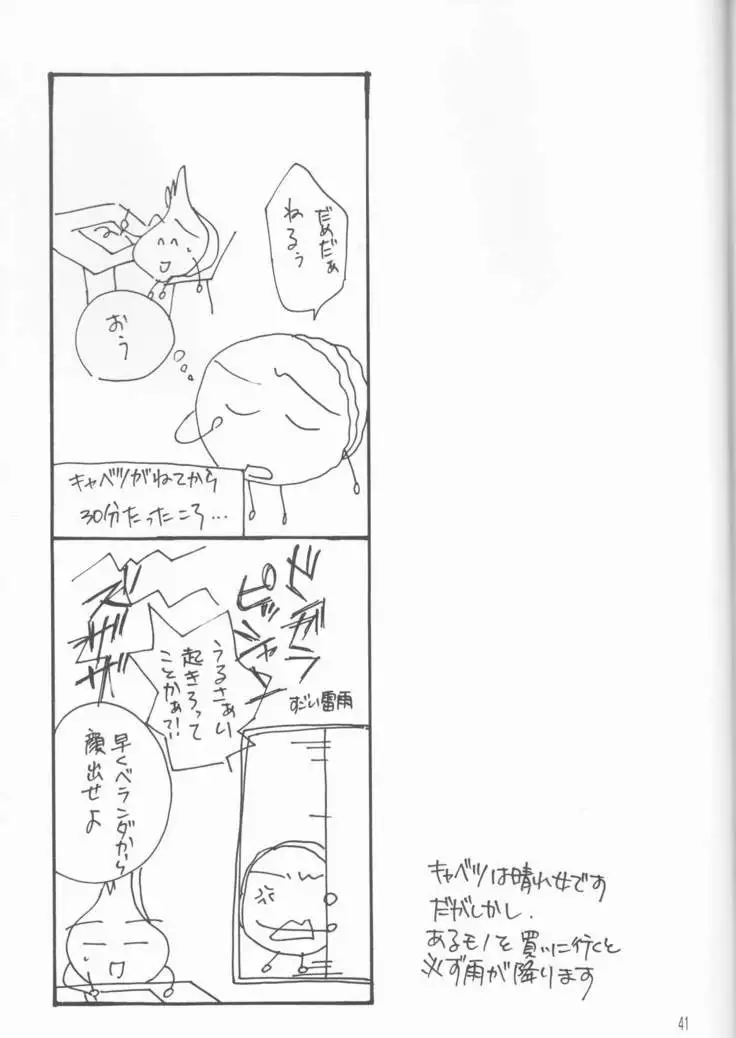 だめだぁ
ねるぅ
おう
キャベツがねてから
30分たったころ…
ガラ
ピシャ
すごい雷雨
うるさぁい
起きろって
ことかぁ?!
ズザザザ
早くベランダから
顔出せよ
キャベツは晴れ女です
だがしかし、
あるモノを買いに行くと
必ず雨が降ります
41